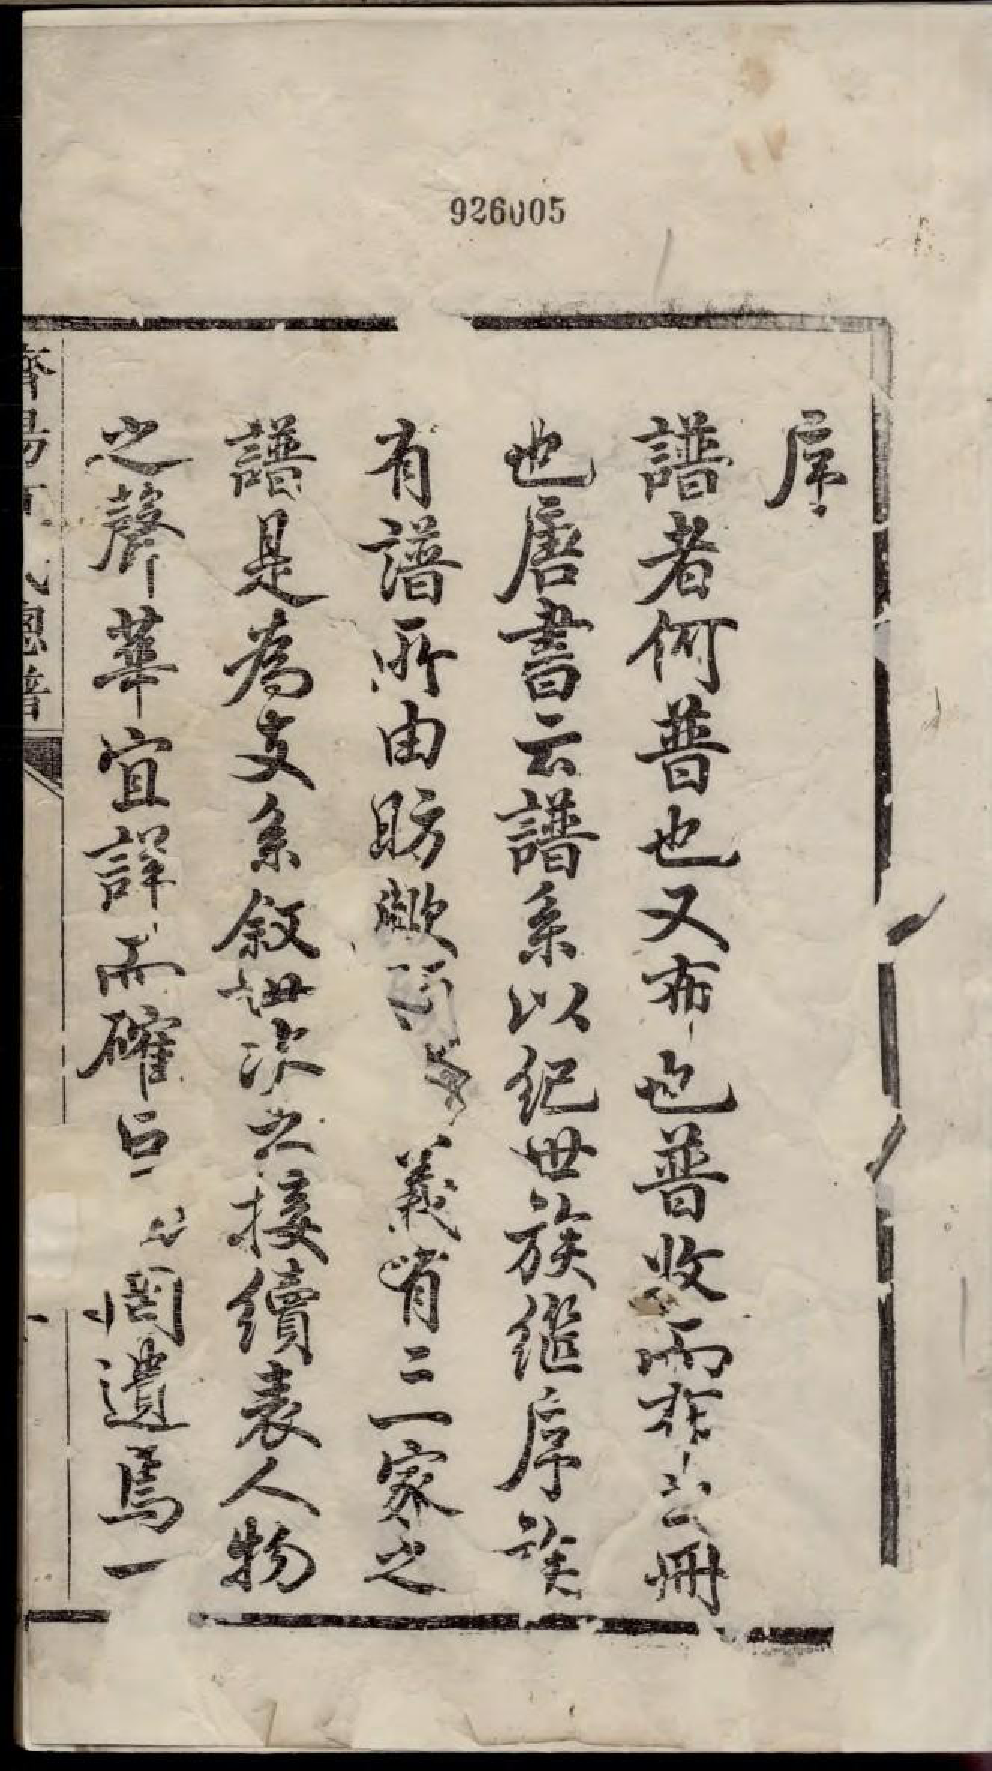 926005
序
譜者何普也又布也普收而布之冊
也唐書云譜系以紀世族繼序族
有譜所由昉歟義有三一家之
譜是為支系敘世次之接續表人物
之聲華宜詳而確罔遺焉一
總譜